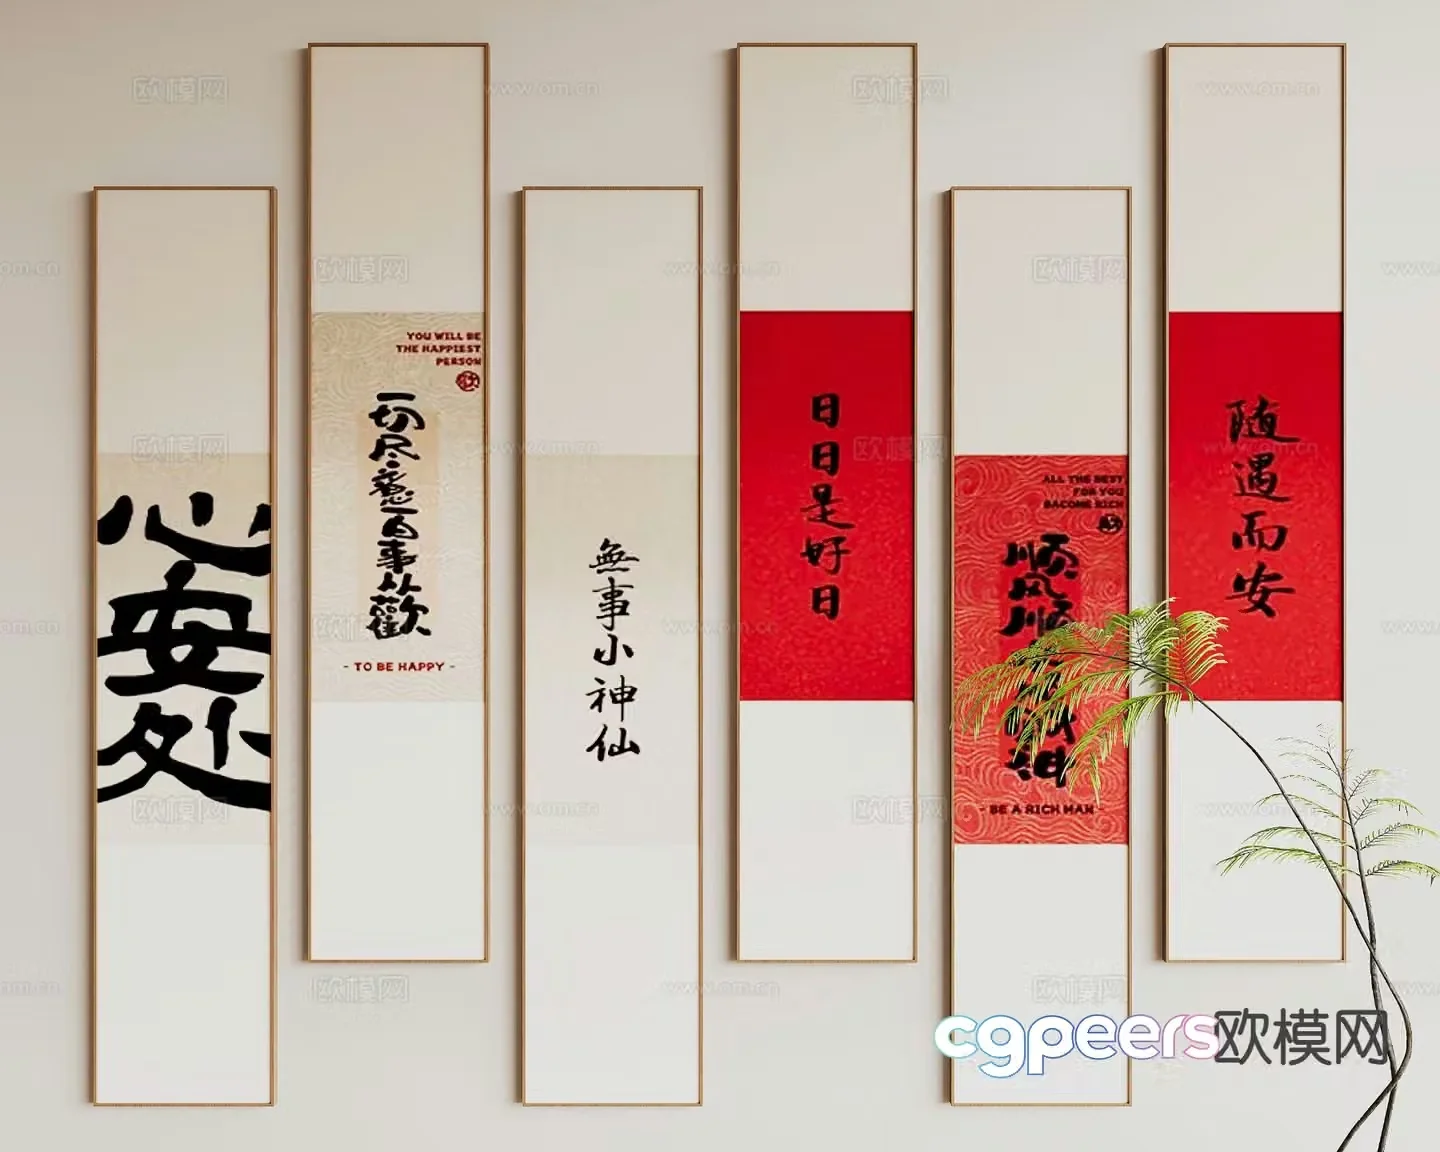 心安处
YOU WILL BE
THE HAPPIEST
PERSON
一切尽意百事从歡
- TO BE HAPPY -
無事小神仙
日日是好日
ALL THE BEST
FOR YOU
BACOME RICH
顺风顺
神
- BE A RICH MAN -
随遇而安
cgpeers欧模网
欧模网
www.om.cn